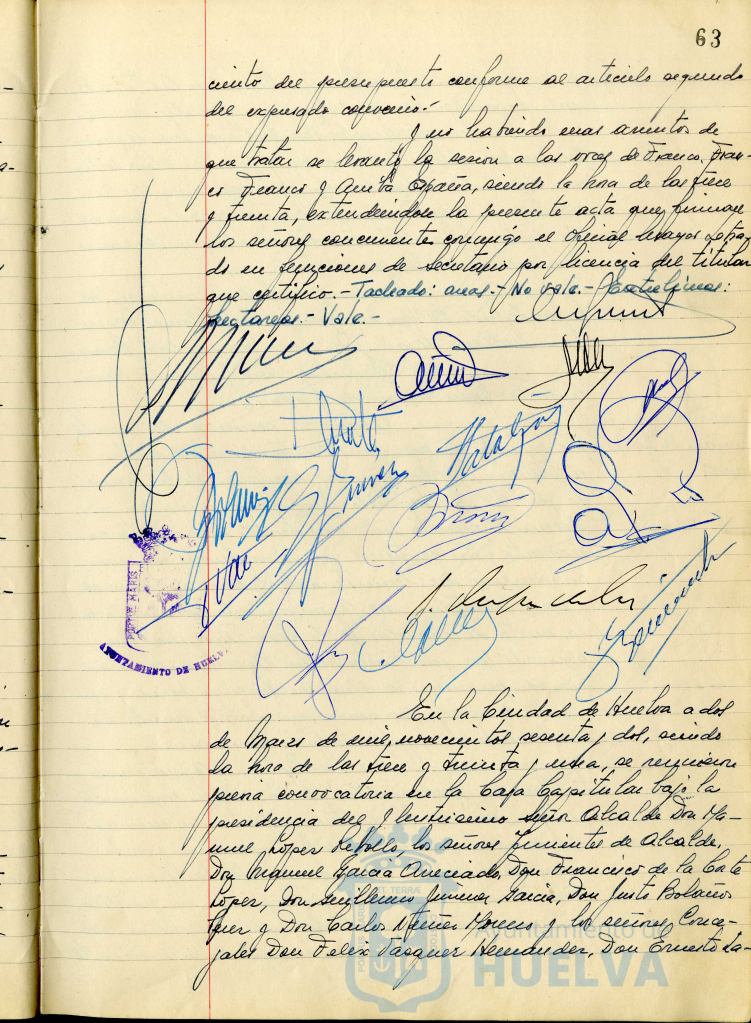 63
ciento del presupuesto conforme al articulo segundo
del expresado convenio.-
Y no habiendo mas asuntos de
que tratar se levantó la sesion a las voces de Franco, Fran-
co Franco y Arriba España, siendo la hora de las trece
y treinta, extendiendose la presente acta que firman
los señores concurrentes conmigo el Oficial Mayor Letra-
do en funciones de Secretario por licencia del titular
que certifico.- Tachado: anas.- No vale.- Entrelineas:
hectareas.- Vale.-
AYUNTAMIENTO DE HUELVA
En la Ciudad de Huelva a dos
de Marzo de mil novecientos sesenta y dos, siendo
la hora de las trece y treinta y una, se reunieron
previa convocatoria en la Casa Capitular bajo la
presidencia del Ilustrisimo Señor Alcalde Don Ma-
nuel Lopez Rebollo, los señores Tenientes de Alcalde,
Don Miguel Garcia Don Francisco de la Corte
Lopez, Don Guillermo Jimenez Garcia, Don Justo Bolaños
y Don Carlos Nuñez Moreno y los señores Conce-
jales Don Felix Vazquez Hernandez, Don Ernesto La-
Ayuntamiento de
HUELVA